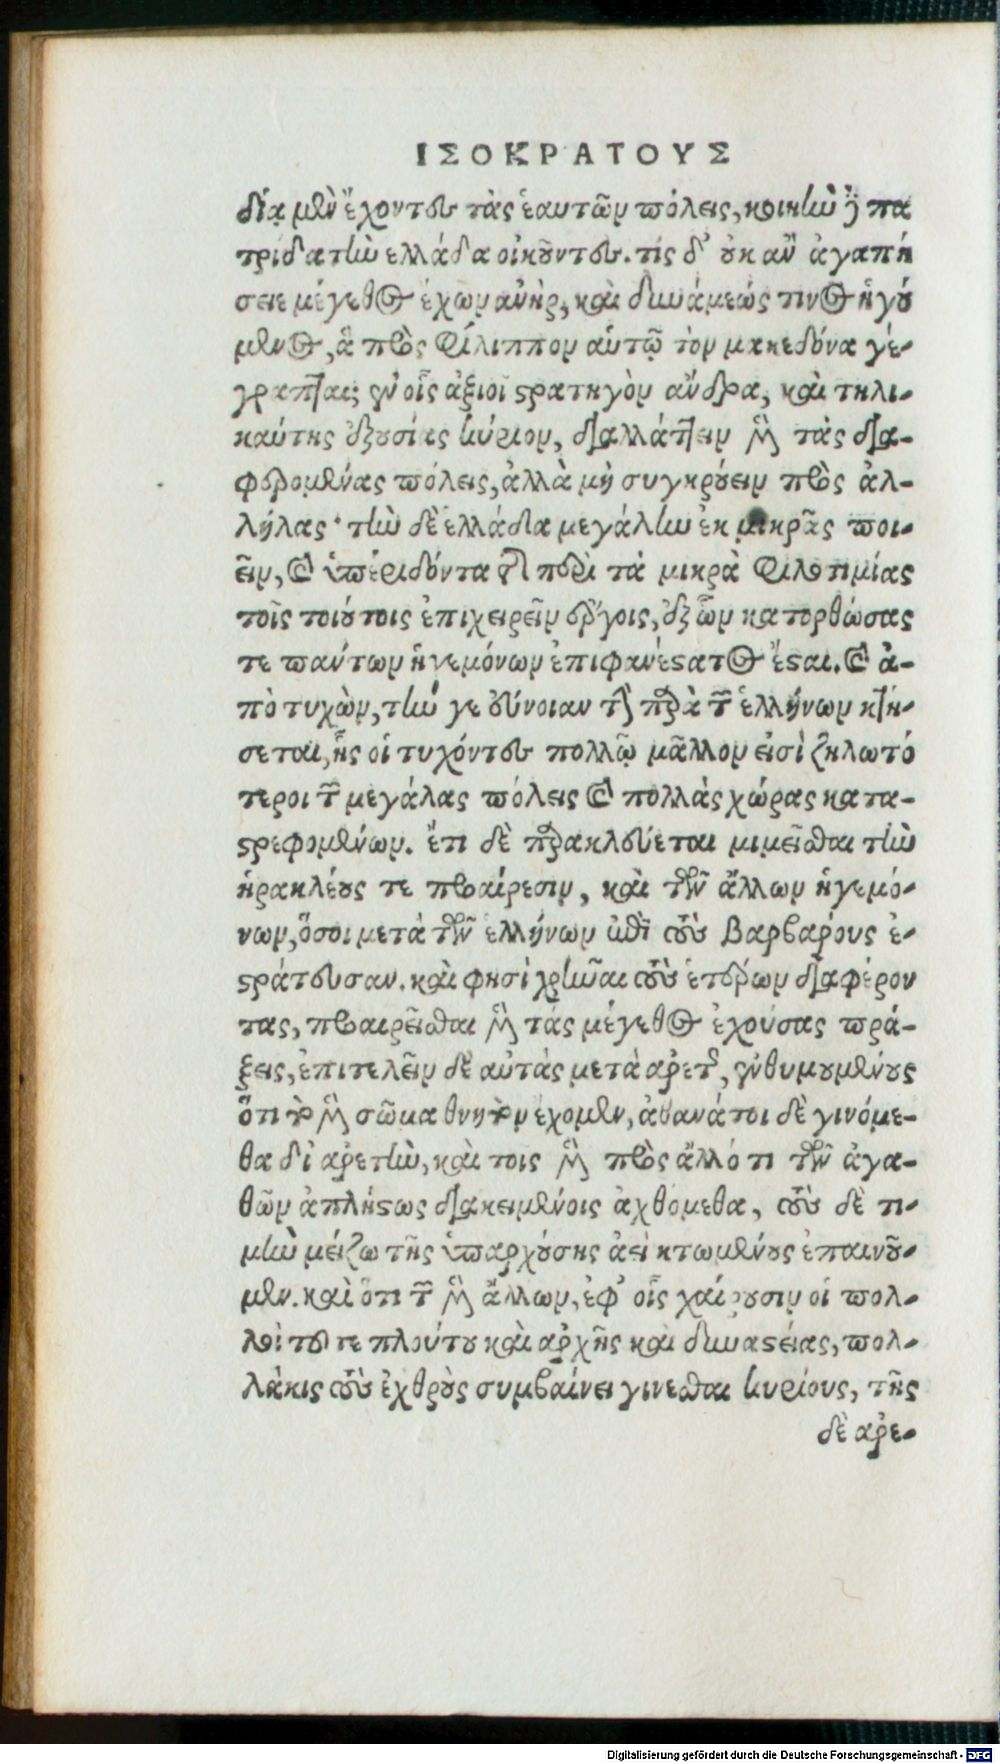 ΙΣΟΚΡΑΤΟΥΣ
δίᾳ μὲν ἔχοντες τὰς ἑαυτῶν πόλεις, κοινὴν δὲ πα
τρίδα τὴν ελλάδα οἰκοῦντες. τίς δ' οὐκ ἂν ἀγαπή
σειε μέγεθος ἔχων ἀνὴρ, καὶ δυνάμεώς τινος ἡγού
μενος, ἃ πρὸς Φίλιππον αὐτῷ τὸν μακεδόνα γέ-
γραπται; ἐν οἷς ἀξιοῖ στρατηγὸν ἄνδρα, καὶ τηλι-
καύτης ἐξουσίας κύριον, διαλλάττειν μὲν τὰς δια-
φερομένας πόλεις, ἀλλὰ μὴ συγκρούειν πρὸς ἀλ-
λήλας· τὴν δὲ ἑλλάδα μεγάλην ἐκ μικρᾶς ποι-
εῖν, καὶ ὑπεριδόντα τῆς περὶ τὰ μικρὰ φιλοτιμίας
τοῖς τοιούτοις ἐπιχειρεῖν ἔργοις, ἐξ ὧν κατορθώσας
τε πάντων ἡγεμόνων ἐπιφανέστατος ἔσται. καὶ ἀ-
πὸ τυχὼν, τήν γε εὔνοιαν τὴν παρὰ τῶν ἑλλήνων κτή-
σεται, ἧς οἱ τυχόντες πολλῷ μᾶλλον εἰσὶ ζηλωτό
τεροι τῶν μεγάλας πόλεις καὶ πολλὰς χώρας κατα-
στρεφομένων. ἔτι δὲ παρακελεύεται μιμεῖσθαι τὴν
ἡρακλέους τε προαίρεσιν, καὶ τῶν ἄλλων ἡγεμό-
νων, ὅσοι μετὰ τῶν ἑλλήνων ἐπὶ τοὺς βαρβάρους ἐ-
στράτευσαν. καὶ φησὶ χρῆναι τοὺς ἑτέρων διαφέρον
τας, προαιρεῖσθαι μὲν τὰς μέγεθος ἐχούσας πρά-
ξεις, ἐπιτελεῖν δὲ αὐτὰς μετὰ ἀρετῆς, ἐνθυμουμένους
ὅτι τὸ μὲν σῶμα θνητὸν ἔχομεν, ἀθανάτοι δὲ γινόμε-
θα δι ἀρετὴν, καὶ τοις μὲν πρὸς ἄλλό τι τῶν ἀγα-
θῶν ἀπλήστως διακειμένοις ἀχθόμεθα, τοὺς δὲ τι-
μὴν μείζω τῆς ὑπαρχούσης ἀεὶ κτωμένους ἐπαινοῦ-
μεν. καὶ ὅτι τῶν μὲν ἄλλων, ἐφ' οἷς χαίρουσιν οἱ πολ-
λοὶ τοῦ τε πλούτου καὶ ἀρχῆς καὶ δυναστείας, πολ-
λάκις τοὺς ἐχθροὺς συμβαίνει γίνεσθαι κυρίους, τῆς
δὲ ἀρε-
Digitalisierung gefördert durch die Deutsche Forschungsgemeinschaft - DFG